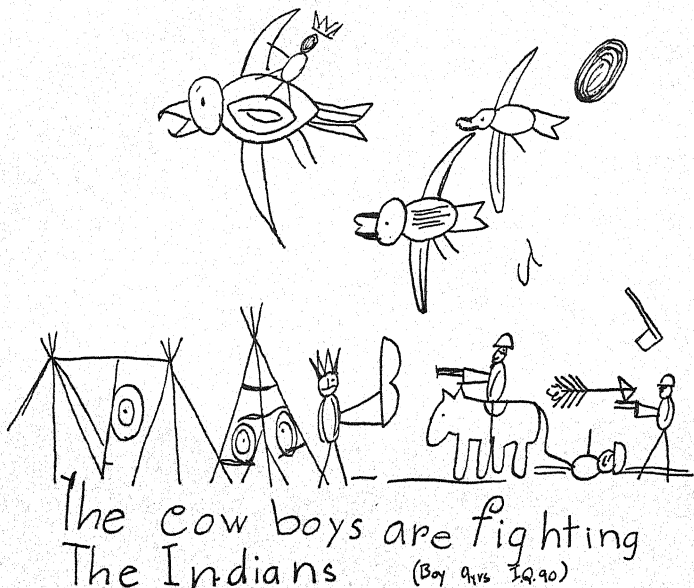 The cow boys are fighting
The Indians (Boy 9yrs I.Q.90)